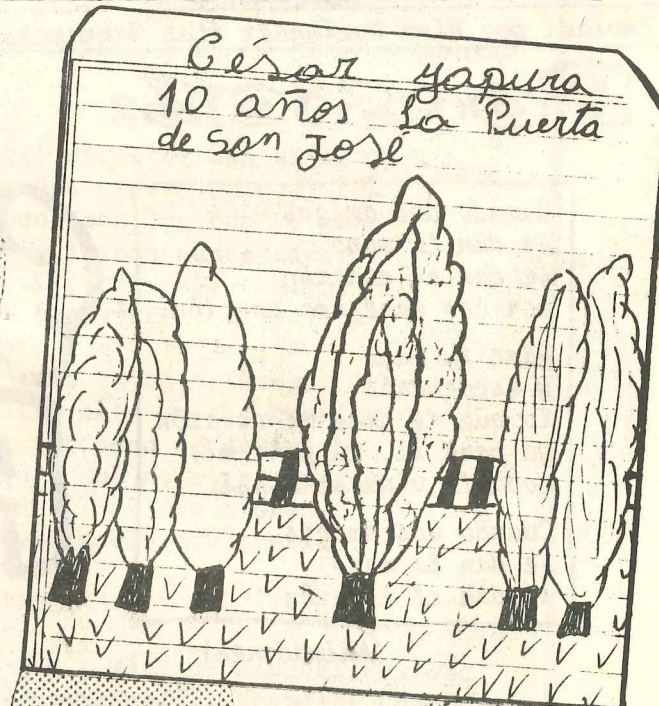 Cesar yapura
10 años La Puerta
de San José